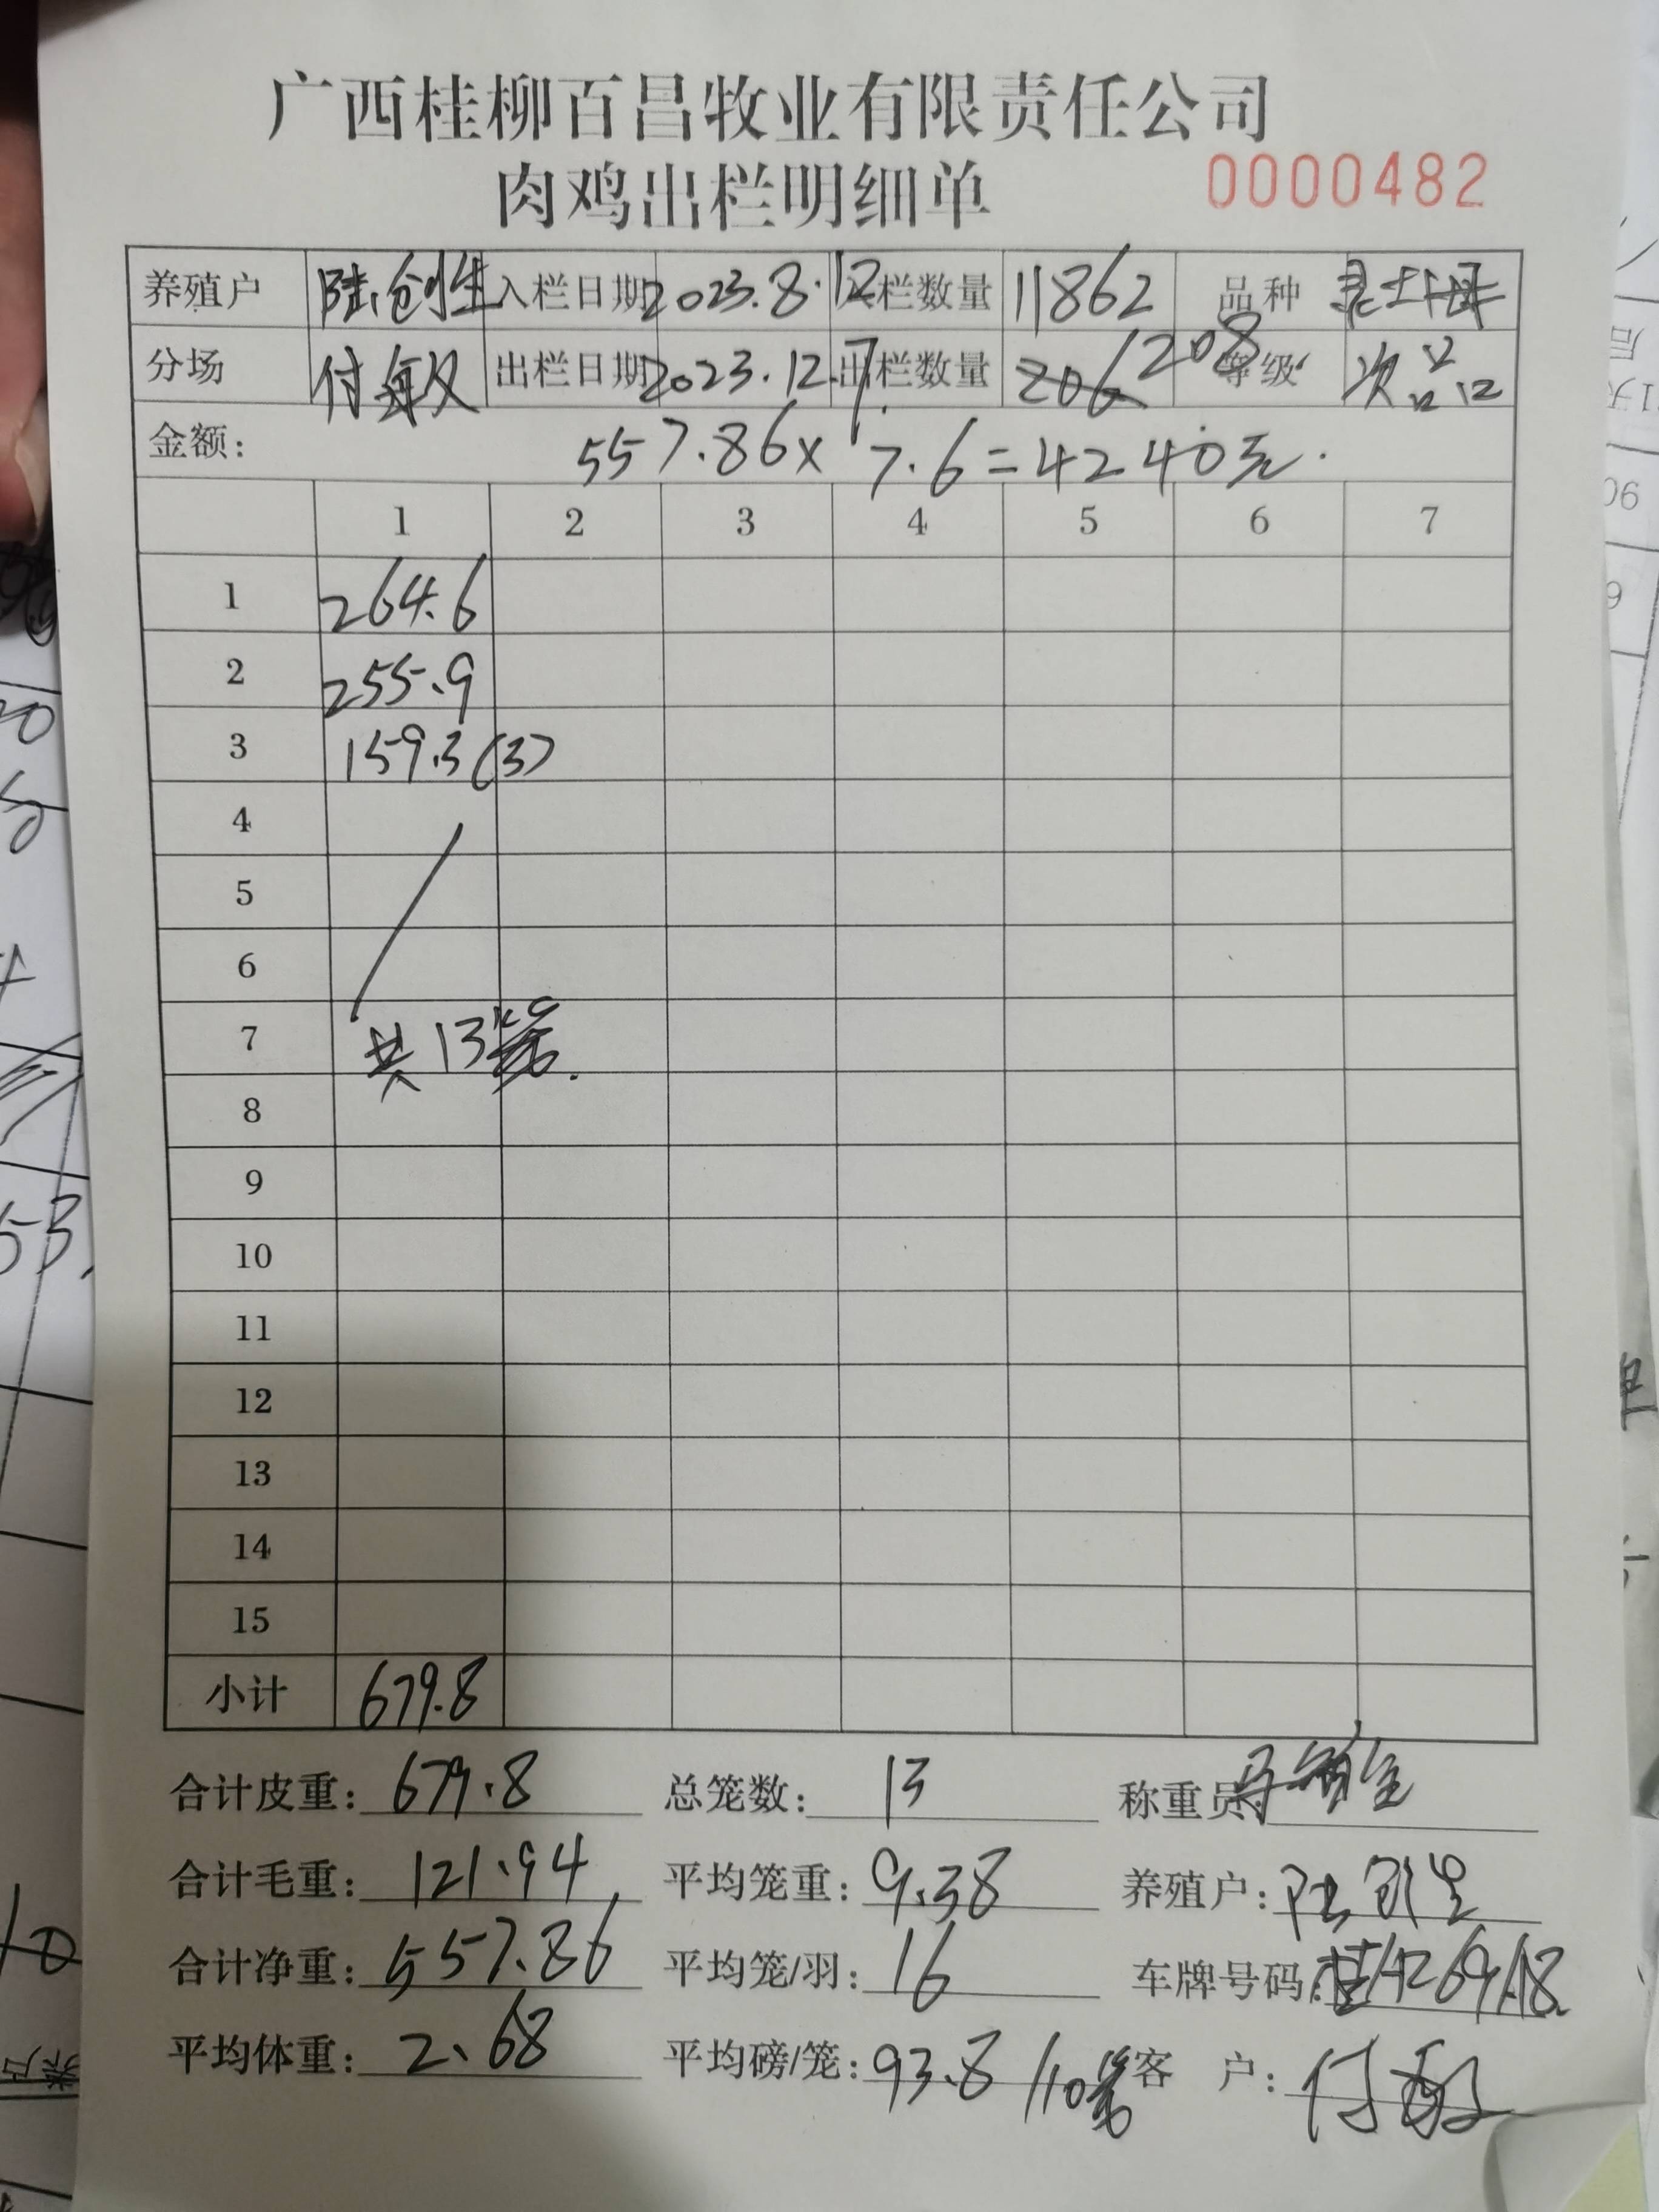 广西桂柳百昌牧业有限责任公司
肉鸡出栏明细单 0000482
养殖户 陆创生 入栏日期 2023.8.12 入栏数量 11862 品种 灵土母
分场 付敏 出栏日期 2023.12.7 出栏数量 206 208 等级 次品
金额: 557.86×7.6=4240元.
1 2 3 4 5 6 7
1 264.6
2 255.9
3 159.3(3)
4
5
6
7 共13笼.
8
9
10
11
12
13
14
15
小计 679.8
合计皮重: 679.8 总笼数: 13 称重员:
合计毛重: 121.94 平均笼重: 9.38 养殖户: 陆创生
合计净重: 557.86 平均笼/羽: 16 车牌号码:
平均体重: 2.68 平均磅/笼: 93.8/10笼 客 户: 付敏